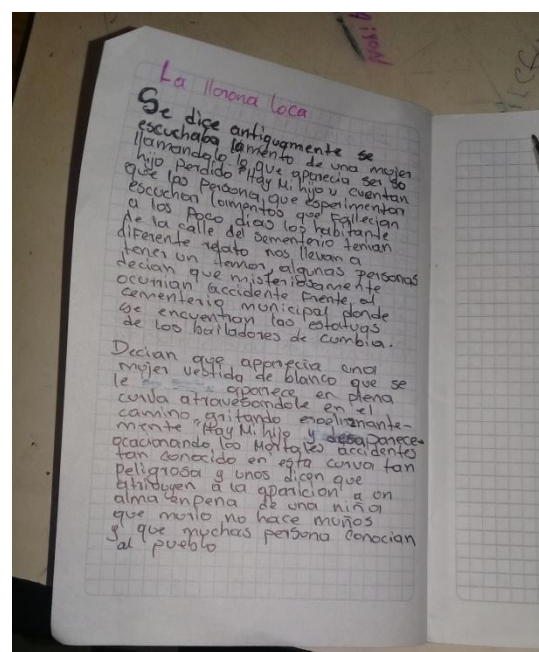 La llorona loca
Se dice antiguamente se
escuchaba lamento de una mujer
llamandolo lo que aparecia ser so
hijo perdido "Hay Mi hijo" cuentan
que las persona que esperimentan
escuchan lamentos que Fallecian
a los Poco dias los habitante
de la calle del sementerio tenian
diferente relato nos llevan a
tener un temor, algunas personas
decian que misteriosamente
ocurrian accidente frente al
cementerio municipal donde
se encuentran las estatuas
de los bailadores de cumbia.
Decian que apparecia una
mujer vestida de blanco que se
le aparece en plena
curva atravesandole en el
camino, gritando
"Hay Mi hijo y desaparece
ocacionando los Mortales accidentes
tan conocido en esta curva tan
peligrosa y unos dicen que
atribuyen a la aparicion a un
alma enpena de una niña
que murio no hace muños
y que muchas persona conocian
al pueblo